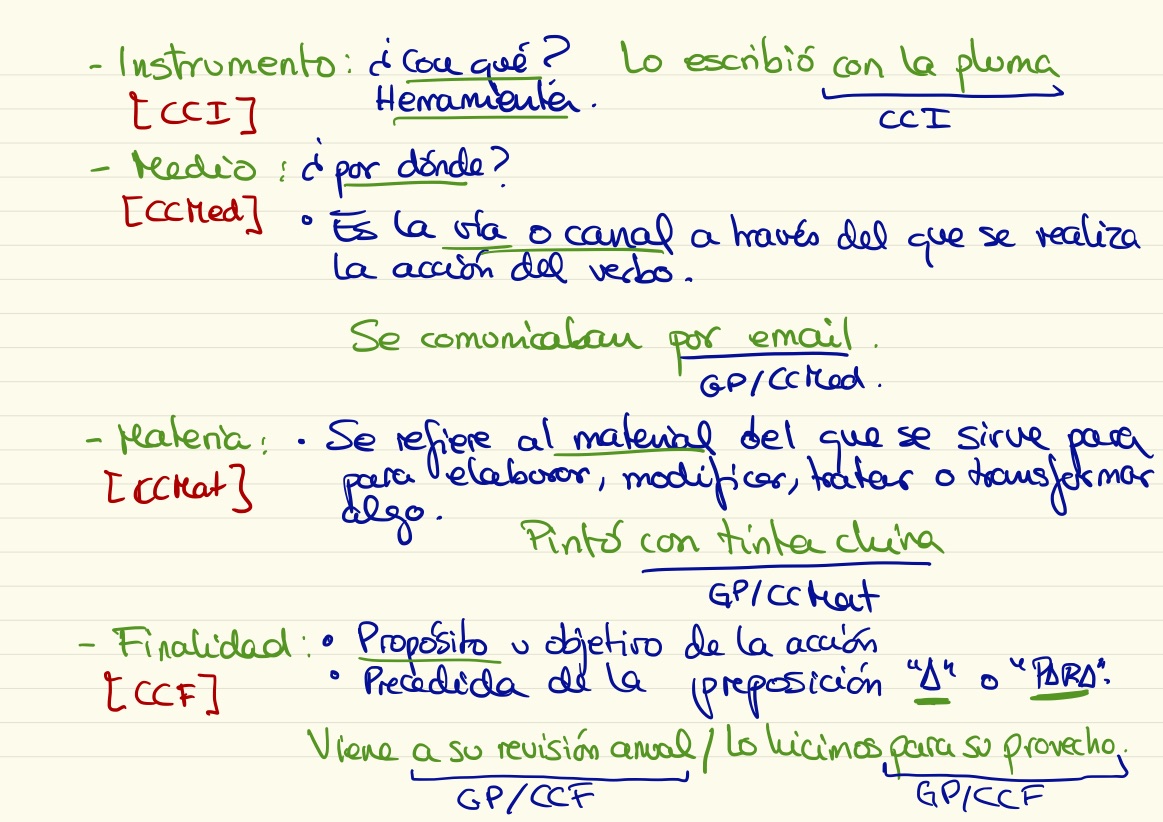 - Instrumento: ¿Con qué? Lo escribió con la pluma
[CCI] Herramienta. CCI
- Medio: ¿por dónde?
[CCMed] • Es la vía o canal a través del que se realiza
la acción del verbo.
Se comunicaban por email.
GP/CCMed.
- Materia: • Se refiere al material del que se sirve para
[CCMat] para elaborar, modificar, tratar o transformar
algo.
Pintó con tinta china
GP/CCMat
- Finalidad: • Propósito u objetivo de la acción
[CCF] • Precedida de la preposición "A" o "PARA".
Viene a su revisión anual / Lo hicimos para su provecho.
GP/CCF GP/CCF